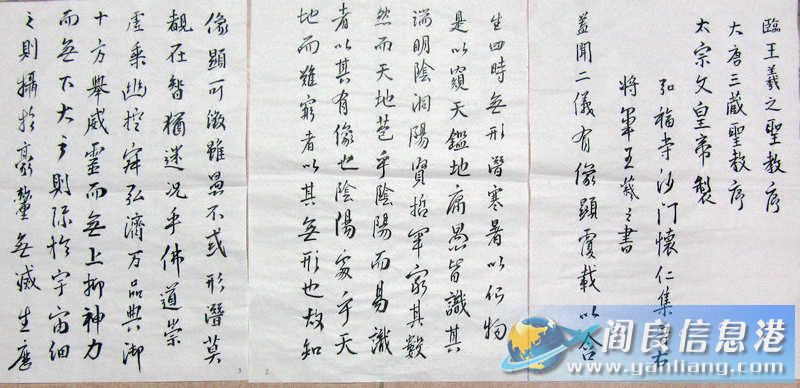 臨王羲之聖教序
大唐三藏聖教序
太宗文皇帝製
弘福寺沙门懷仁集晋右
將軍王羲之書
蓋聞二儀有像顯覆載以含
生四時無形潛寒暑以化物
是以窺天鑑地庸愚皆識其
端明陰洞陽賢哲罕窮其數
然而天地苞乎陰陽而易識
者以其有像也陰陽處乎天
地而難窮者以其無形也故知
2
像顯可徵雖愚不惑形潛莫
覩在智猶迷况乎佛道崇
虛乘幽控寂弘濟万品典御
十方舉威靈而無上抑神力
而無下大之則弥於宇宙細
之則攝於豪釐無滅生歷
3
阎良信息港
www.yanliang.com